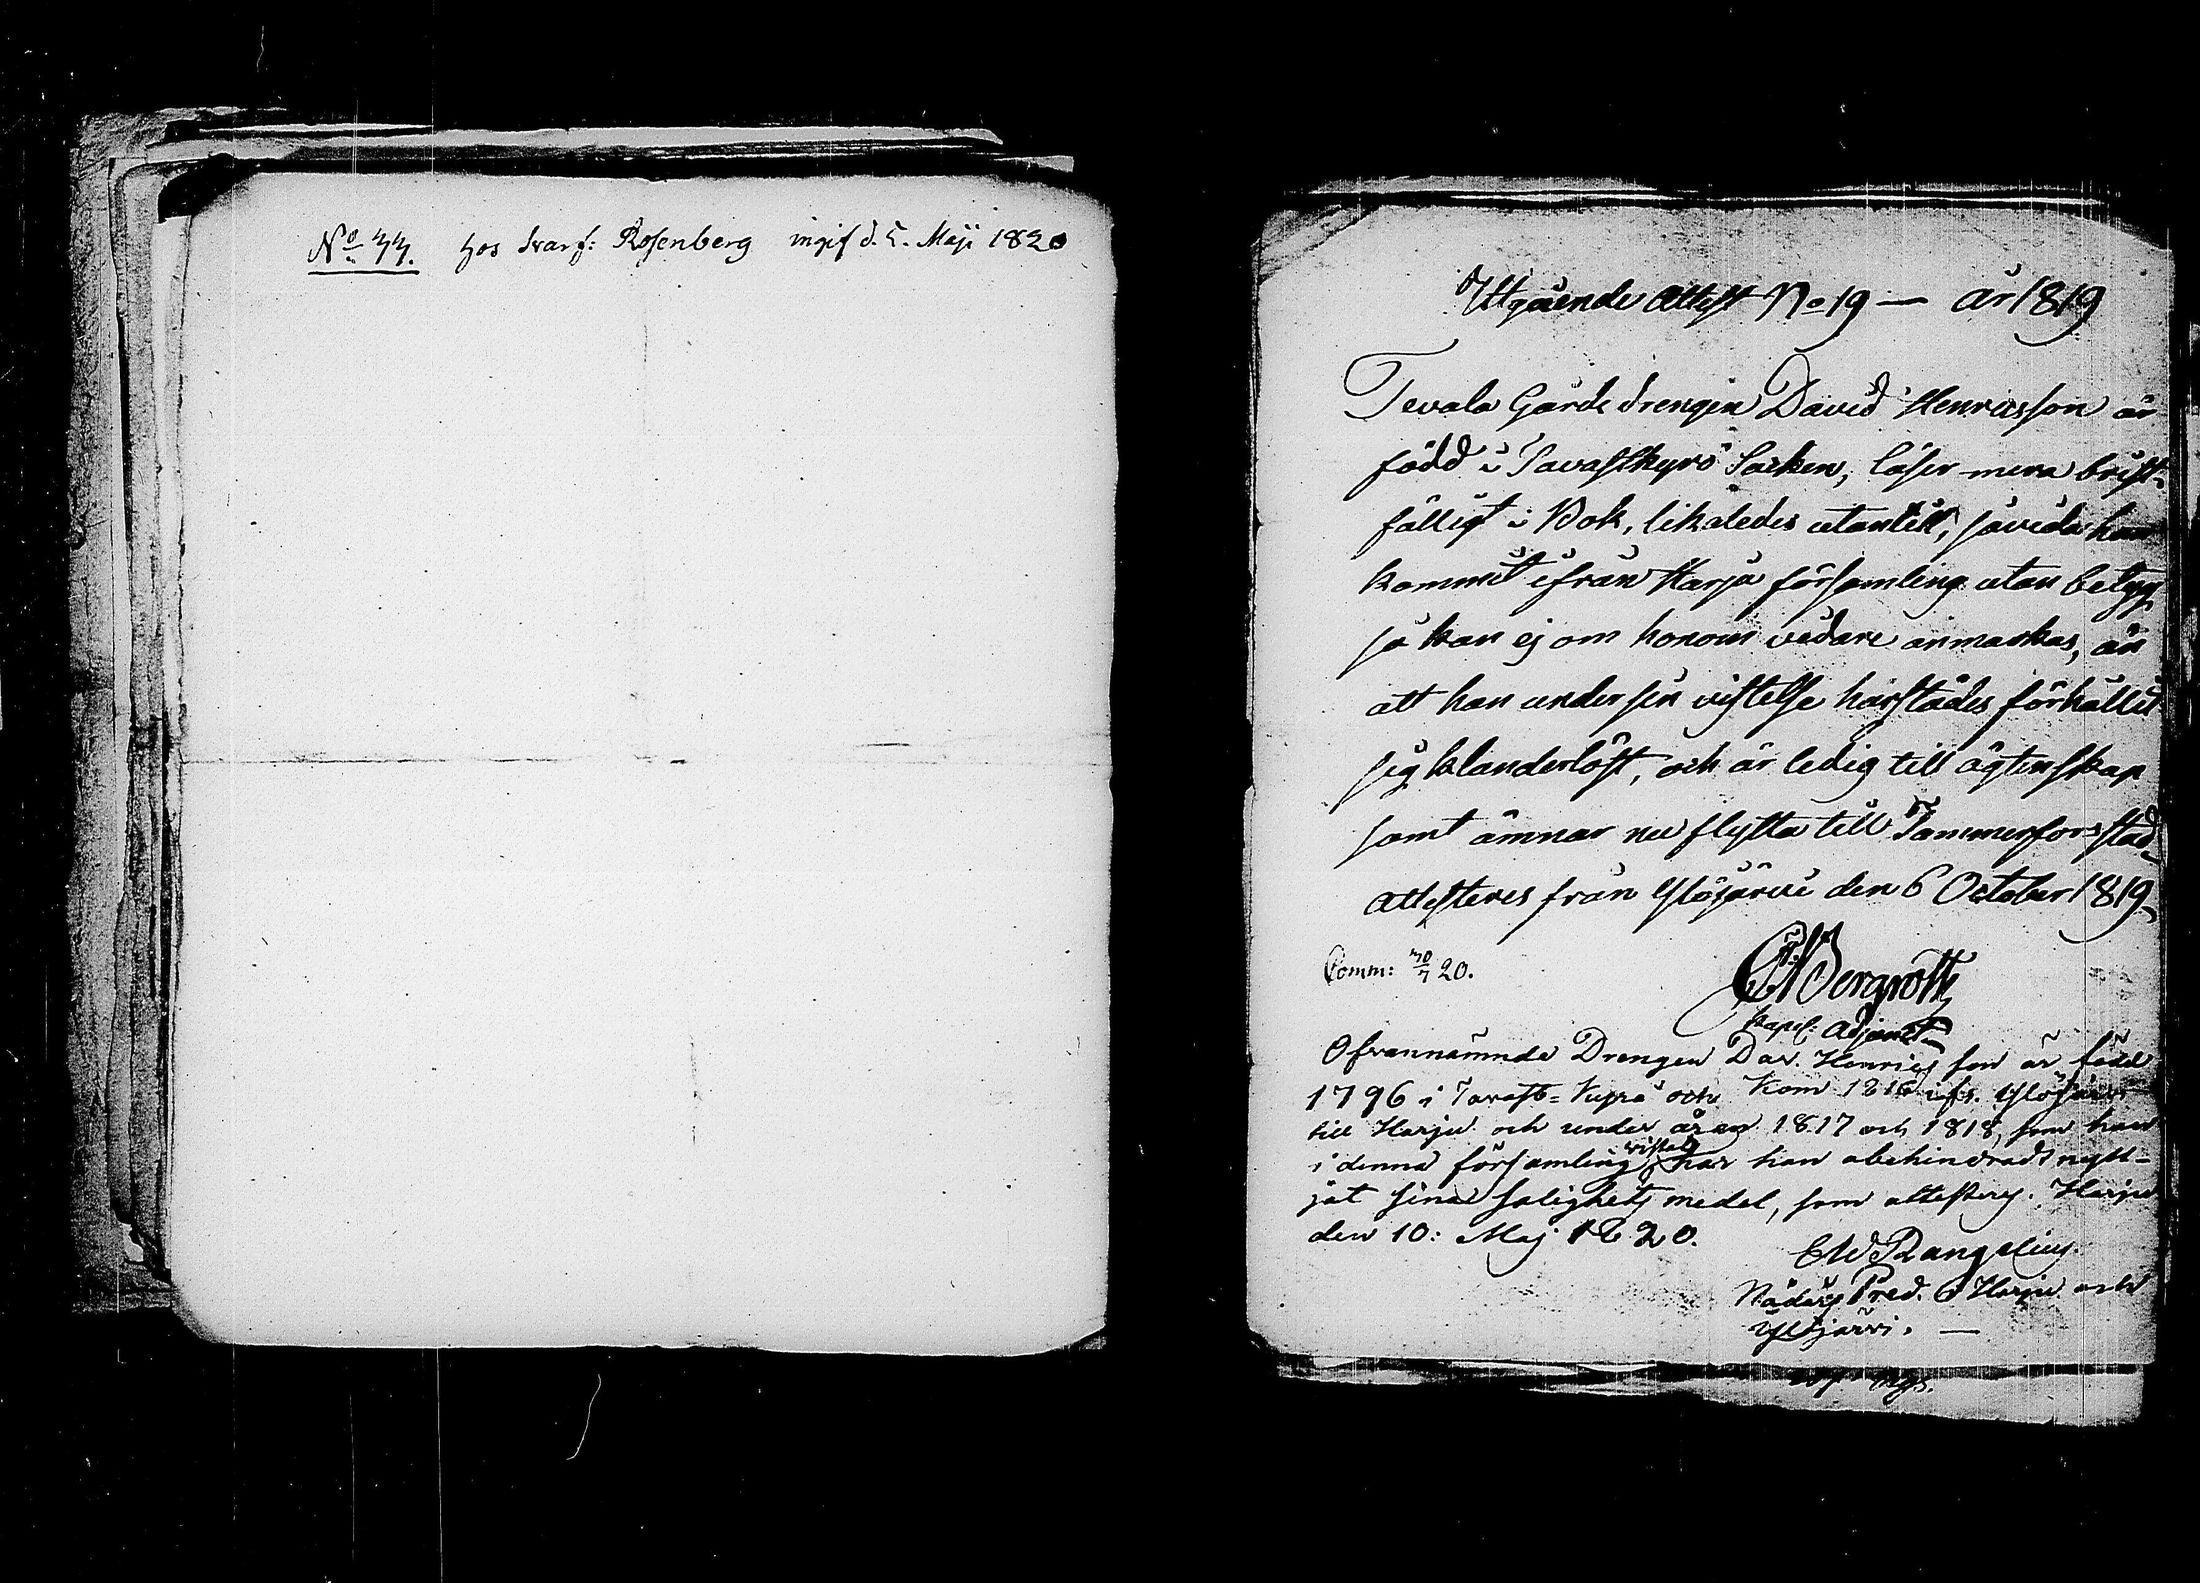 No 44. hos Svarf: Rosenberg ingif d. 5. Maji 1820
Utgående Attest No 19 — år 1819
Tevala Gårds drengen David Henricsson är
född i Tavastkyrö Socken, läser mera brist-
fälligt i Bok, likaledes utantill, såvida han
kommit ifrån Harju församling utan betyg,
så kan ej om honom vidare anmärkas, än
att han under sin vistelse härstädes förhållit
sig klanderlöst, och är ledig till ägtenskap
samt ämnar nu flytta till Tammerfors stad
attesteres från Ylöjärvi den 6 October 1819
Comm: 20.
Bergroth
Kapel: Adjunct
Ofvannämnde Drengen Dav. Henricsson är född
1796 i Tavast-Kyrö och kom 1816 ifr. Ylöjärvi
till Harju och under åren 1817 och 1818, som han
i denna församling vistats har han obehindradt nytt-
jat sina salighets medel, som attesteras. Harju
den 10: Maj 1820.
Rangelius.
Nådårs Pred. i Harju och
Ylöjärvi. —